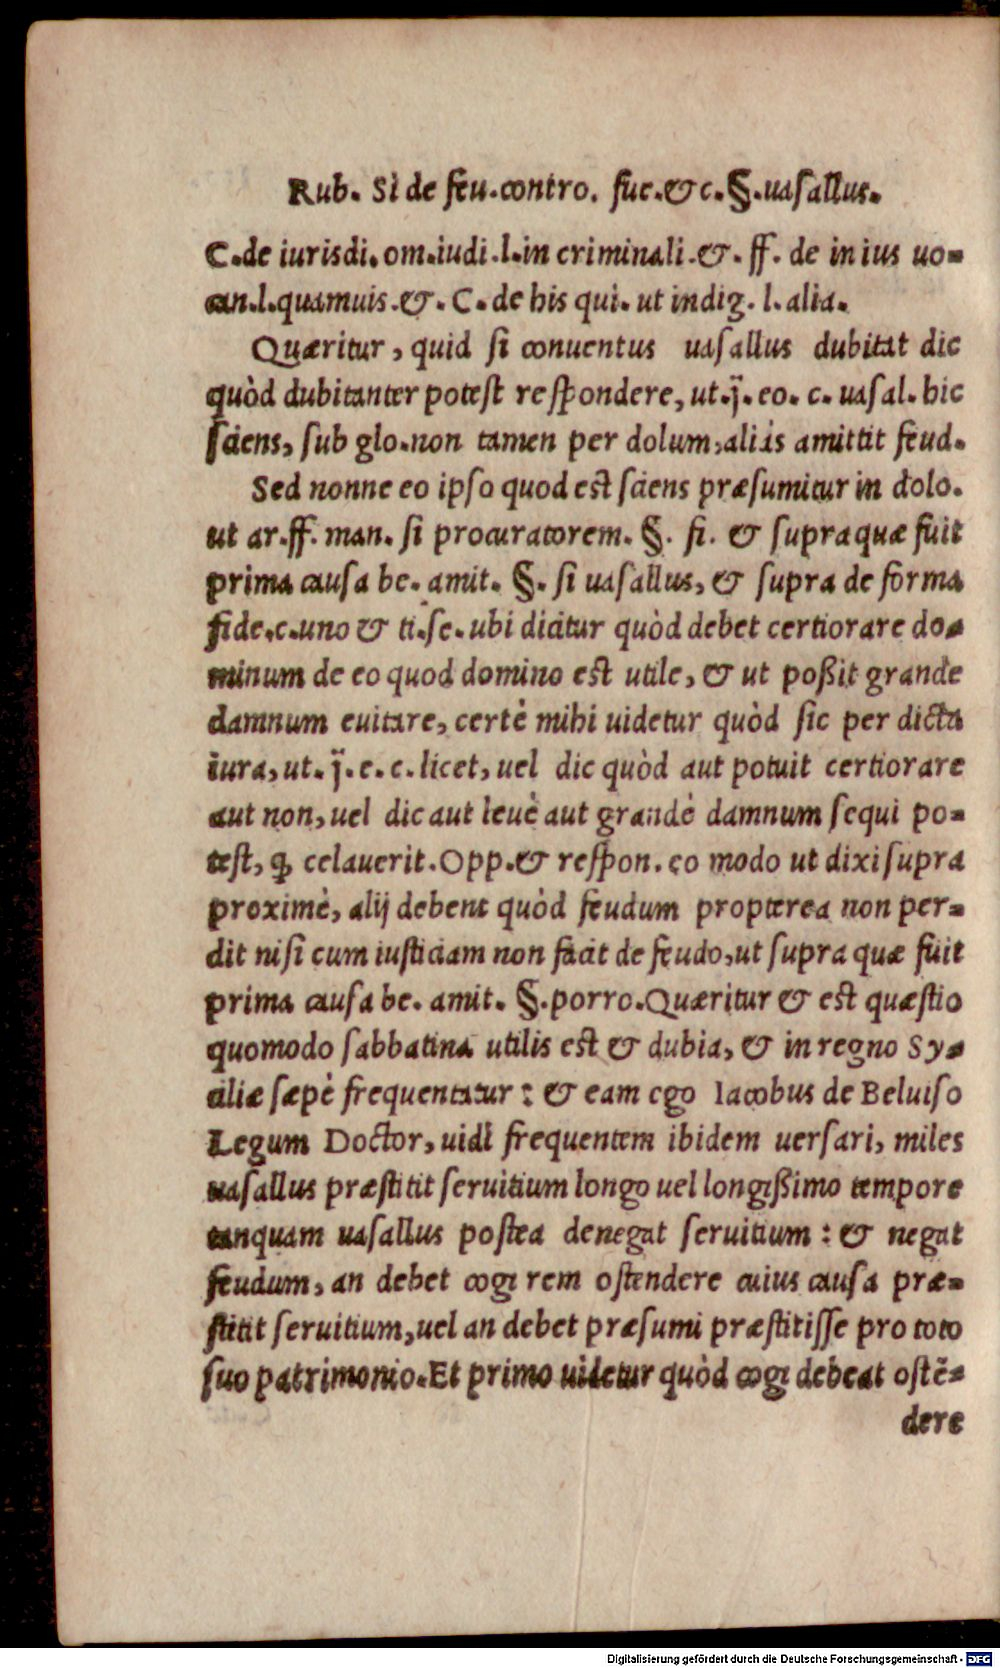 Rub. Si de feu.contro. fue.& c.§.uasallus.
C.de iurisdi.om.iudi.l.in criminali.&. ff. de in ius uo-
can.l.quamuis.&. C. de his qui. ut indig. l. alia.
Quæritur, quid si conuentus uasallus dubitat dic
quòd dubitanter potest respondere, ut.j̄. eo. c. uasal. hic
sciens, sub glo.non tamen per dolum,aliàs amittit feud.
Sed nonne eo ipso quod est sciens præsumitur in dolo.
ut ar.ff. man. si procuratorem. §. fi. & supra quæ fuit
prima causa be. amit. §. si uasallus, & supra de forma
fide.c.uno & ti.se. ubi dicitur quòd debet certiorare do-
minum de eo quod domino est utile, & ut poßit grande
damnum euitare, certè mihi uidetur quòd sic per dicta
iura, ut. j̄. e. c. licet, uel dic quòd aut potuit certiorare
aut non, uel dic aut leuè aut grandè damnum sequi po-
test, ꝙ celauerit. Opp.& respon. eo modo ut dixi supra
proximè, alij debent quòd feudum propterea non per-
dit nisi cum iusticiam non facit de feudo,ut supra quæ fuit
prima causa be. amit. §.porro.Quæritur & est quæstio
quomodo sabbatina utilis est & dubia, & in regno Sy-
ciliæ sæpè frequentatur : & eam ego Iacobus de Beluiso
Legum Doctor, uidi frequentem ibidem uersari, miles
uasallus præstitit seruitium longo uel longißimo tempore
tanquam uasallus postea denegat seruitium : & negat
feudum, an debet cogi rem ostendere cuius causa præ-
stitit seruitium,uel an debet præsumi præstitisse pro toto
suo patrimonio.Et primo uidetur quòd cogi debeat ostē-
dere
Digitalisierung gefördert durch die Deutsche Forschungsgemeinschaft - DFG